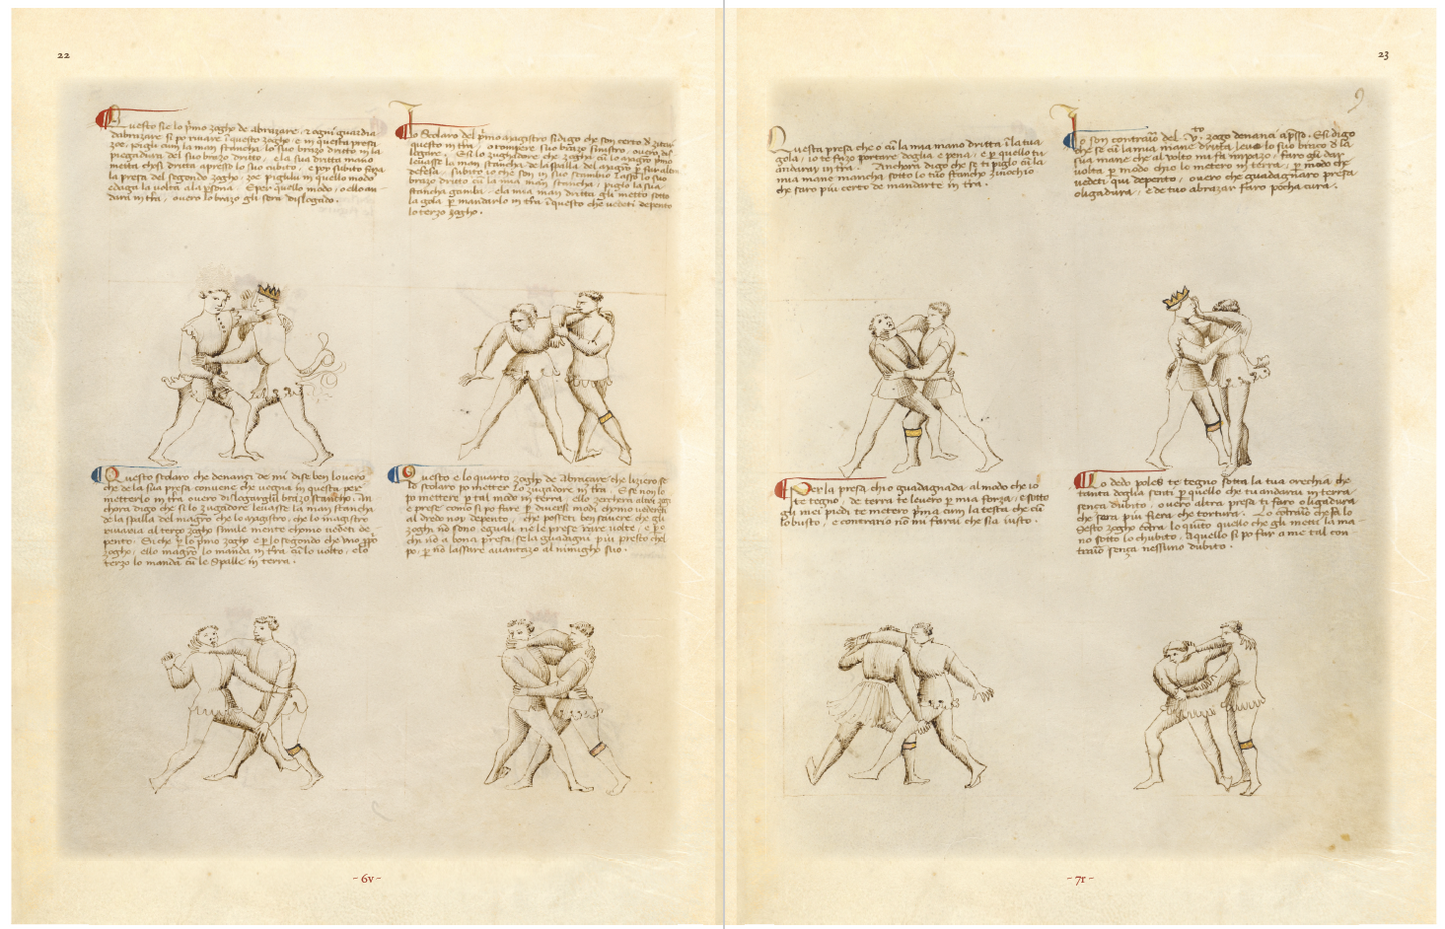 22
Questo sie lo p̃mo zogho de abrazare, e ogni guardia
dabrazare si po rivare ĩ questo zogho, e in questa presa
zoe, pigli cum la man stancha lo suo brazo dritto in la
piegadura del suo brazo dritto, e la sua dritta mano
metta chosi dritta apresso lo suo cubito, e poy subito faza
la presa del segondo zogho, zoe piglilu in quello modo
e daga la volta ala p̱sona. E per quello modo, o ello an-
dara in tr̃a, overo lo brazo gli sera dislogado.
Lo Scolaro del p̃mo magistro si digo che son certo ḏ
questo in tr̃a, o rompere suo brazo sinistro, overo dis-
logare. E si lo zugadore che zogha cũ lo magro p̃mo
levasse la man stancha de la spalla del magro p̱ fare altra
defesa, subito io che son in suo scambio lasso lo suo
brazo dritto cũ la mia man stancha, e piglo la sua
stancha gamba, e la mia man dritta gli metto sotto
la gola p̱ mandarlo in tr̃a ĩ questo che vedeti depento
lo terzo zogho.
Questo scolaro che denançi de mi dise ben lo vero
che de la sua presa convene che vegna in questa per
metterlo in tr̃a overo dislogargli lo brazo stancho. An-
chora digo che si lo zugadore levasse la man stancha
de la spalla del magro che lo magistro, che lo magistro
rivaria al terzo zogho simile mente chomo vedeti de-
pento. Si che p̱ lo p̃mo zogho e p̱ lo segondo che uno p̱o
zogho, ello magro lo manda in tr̃a cũ lo volto, e lo
terzo lo manda cũ le Spalle in terra.
Questo e lo quarto zogho de abrazare che liziero se
lo scolaro po metter lo zugadore in tr̃a. E se non lo
po mettere p̱ tal modo in terra, ello zerchera altri zoghi
e prese como si po fare p̱ diversi modi chomo vedereti
al dredo noy depento, che possen ben savere che gli
zoghi nõ sono inguali ne le prese rare volte, e p̱o
chi nõ a bona presa, se la guadagni piu presto chel
po, p̱ nõ lassare avantazo al nimigho suo.
- 6v -
23
9
Questa presa che o cũ la mia mano dritta ĩ la tua
gola, io te fazo portare doglia e pena, e p̱ quello tu
andaray in tr̃a. Anchora digo che se ti piglo cũ la
mia mane mancha sotto lo tuo stancho zinochio
che saro piu certo de mandarte in tr̃a.
Io son contraũo del .V.to zogo denanci apsso. E si digo
che se cũ la mia mane dritta levo lo suo brazo ḏ la
sua mane che al volto mi fa impazo, faro gli dar
volta p̱ modo chio lo metero in terra, p̱ modo che
vedeti qui depento, overo che guadagnaro presa
o ligadura, e de tuo abrazar faro pocha cura.
Per la presa chio guadagnada, al modo che io
te tegno, de terra te levero p̱ mia forza, e sotto
gli mei piedi te metero p̃ma cum la testa che cũ
lo busto, e contrario nõ mi farai che sia iusto.
Lo dedo poles te tegno sotto la tua orechia che
tanta doglia senti p̱ quello che tu andarai in terra
senza dubito, overo altra presa ti faro o ligadura
che sera piu fiera che tortura. Lo contraũo che fa lo
Sesto zogho cõtra lo quito quello che gli mette la ma-
no sotto lo chubito, Aquello si po far a me tal con-
traũo senza nessuno dubito.
- 7r -